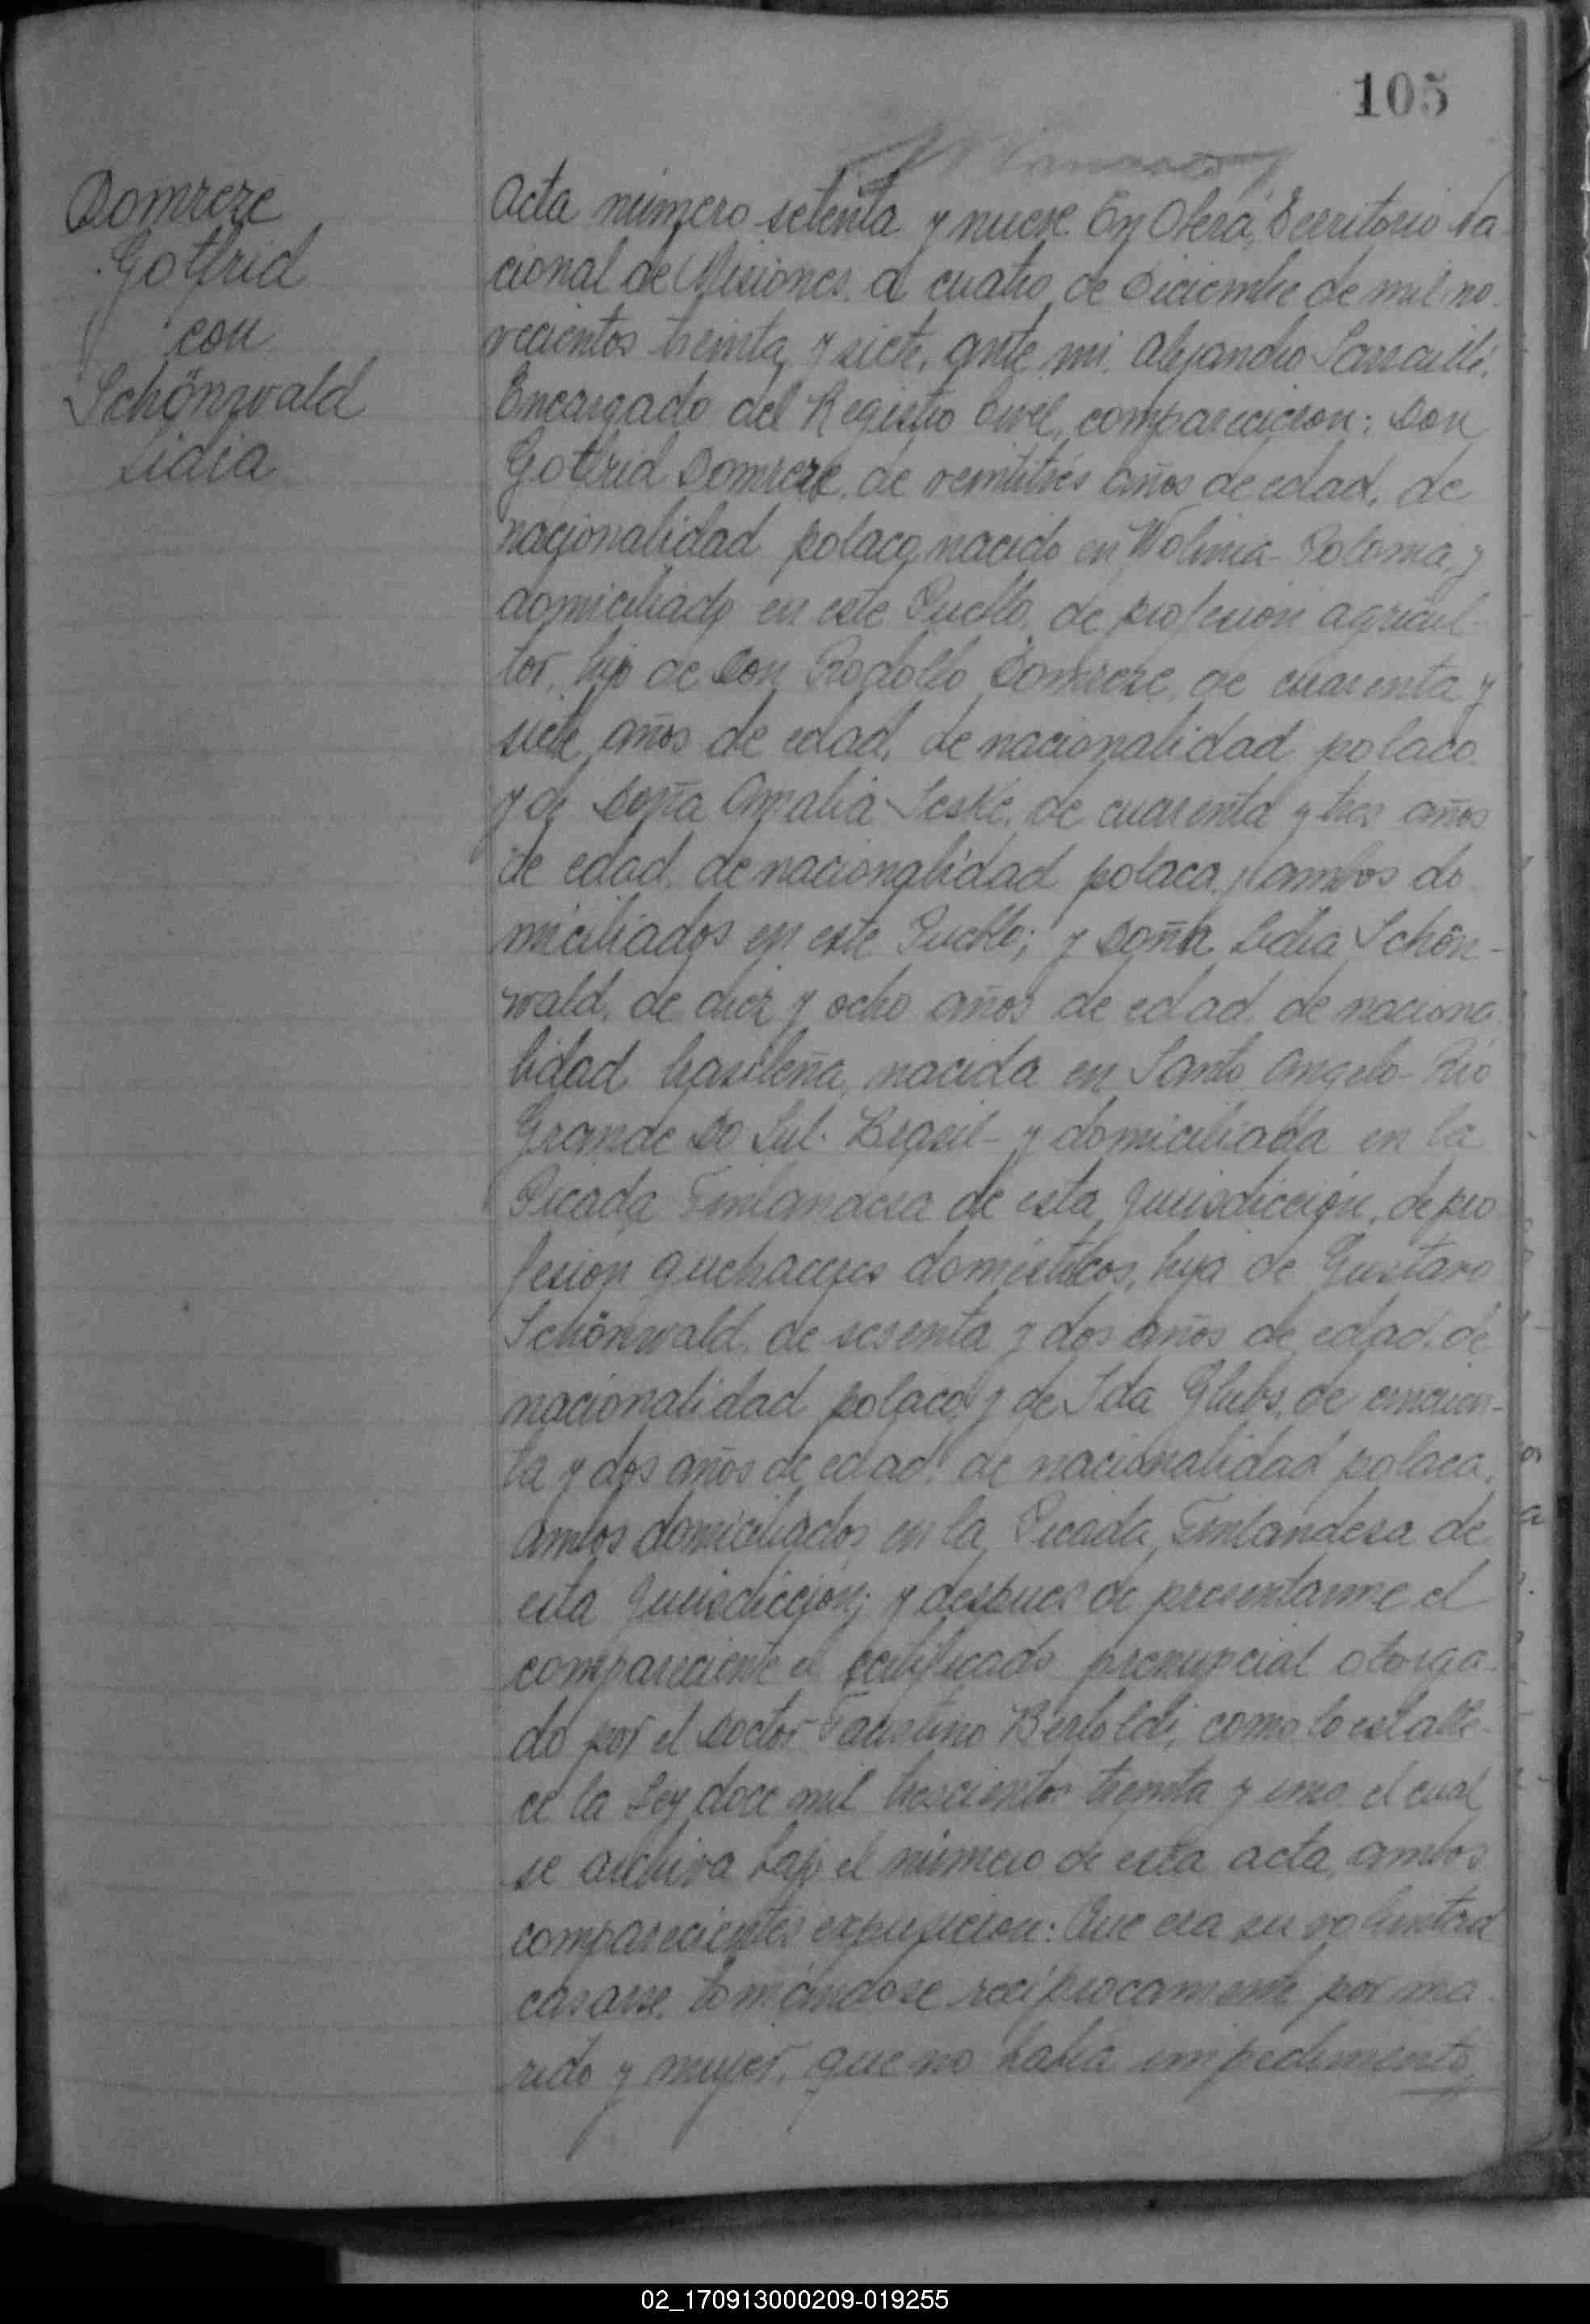 105
Domreze
Gotfrid
con
Schönwald
Lidia
Acta número setenta y nueve. En Oberá, Territorio Na-
cional de Misiones, a cuatro de Diciembre de mil no-
vecientos treinta y siete, ante mi, Alejandro
Encargado del Registro Civil, comparecieron: Don
Gotfrid Domreze, de veintitrés años de edad, de
nacionalidad polaco, nacido en Wolinia-Polonia, y
domiciliado en este Pueblo, de profesión agricul-
tor, hijo de Don Rodolfo Domreze, de cuarenta y
siete años de edad, de nacionalidad polaco
y de Doña Amalia Leske, de cuarenta y tres años
de edad, de nacionalidad polaca, ambos do-
miciliados en este Pueblo; y Doña Lidia Schön-
wald, de diez y ocho años de edad, de naciona-
lidad brasileña, nacida en Santo Angelo-Rio
Grande Do Sul-Brasil- y domiciliada en la
Picada Finlandesa de esta Jurisdicción, de pro-
fesión quehaceres domésticos, hija de Gustavo
Schönwald, de sesenta y dos años de edad, de
nacionalidad polaco, y de Ida Glubs, de cincuen-
ta y dos años de edad, de nacionalidad polaca,
ambos domiciliados en la Picada Finlandesa de
esta Jurisdicción; y despues de presentarme el
compareciente el certificado prenupcial otorga-
do por el Doctor Faustino Bertoldi, como lo estable-
ce la Ley doce mil trescientos treinta y uno, el cual
se archiva bajo el número de esta acta, ambos
comparecientes expusieron: Que era su voluntad
casarse, tomándose recíprocamente por ma-
rido y mujer, que no había impedimento,
02_170913000209-019255